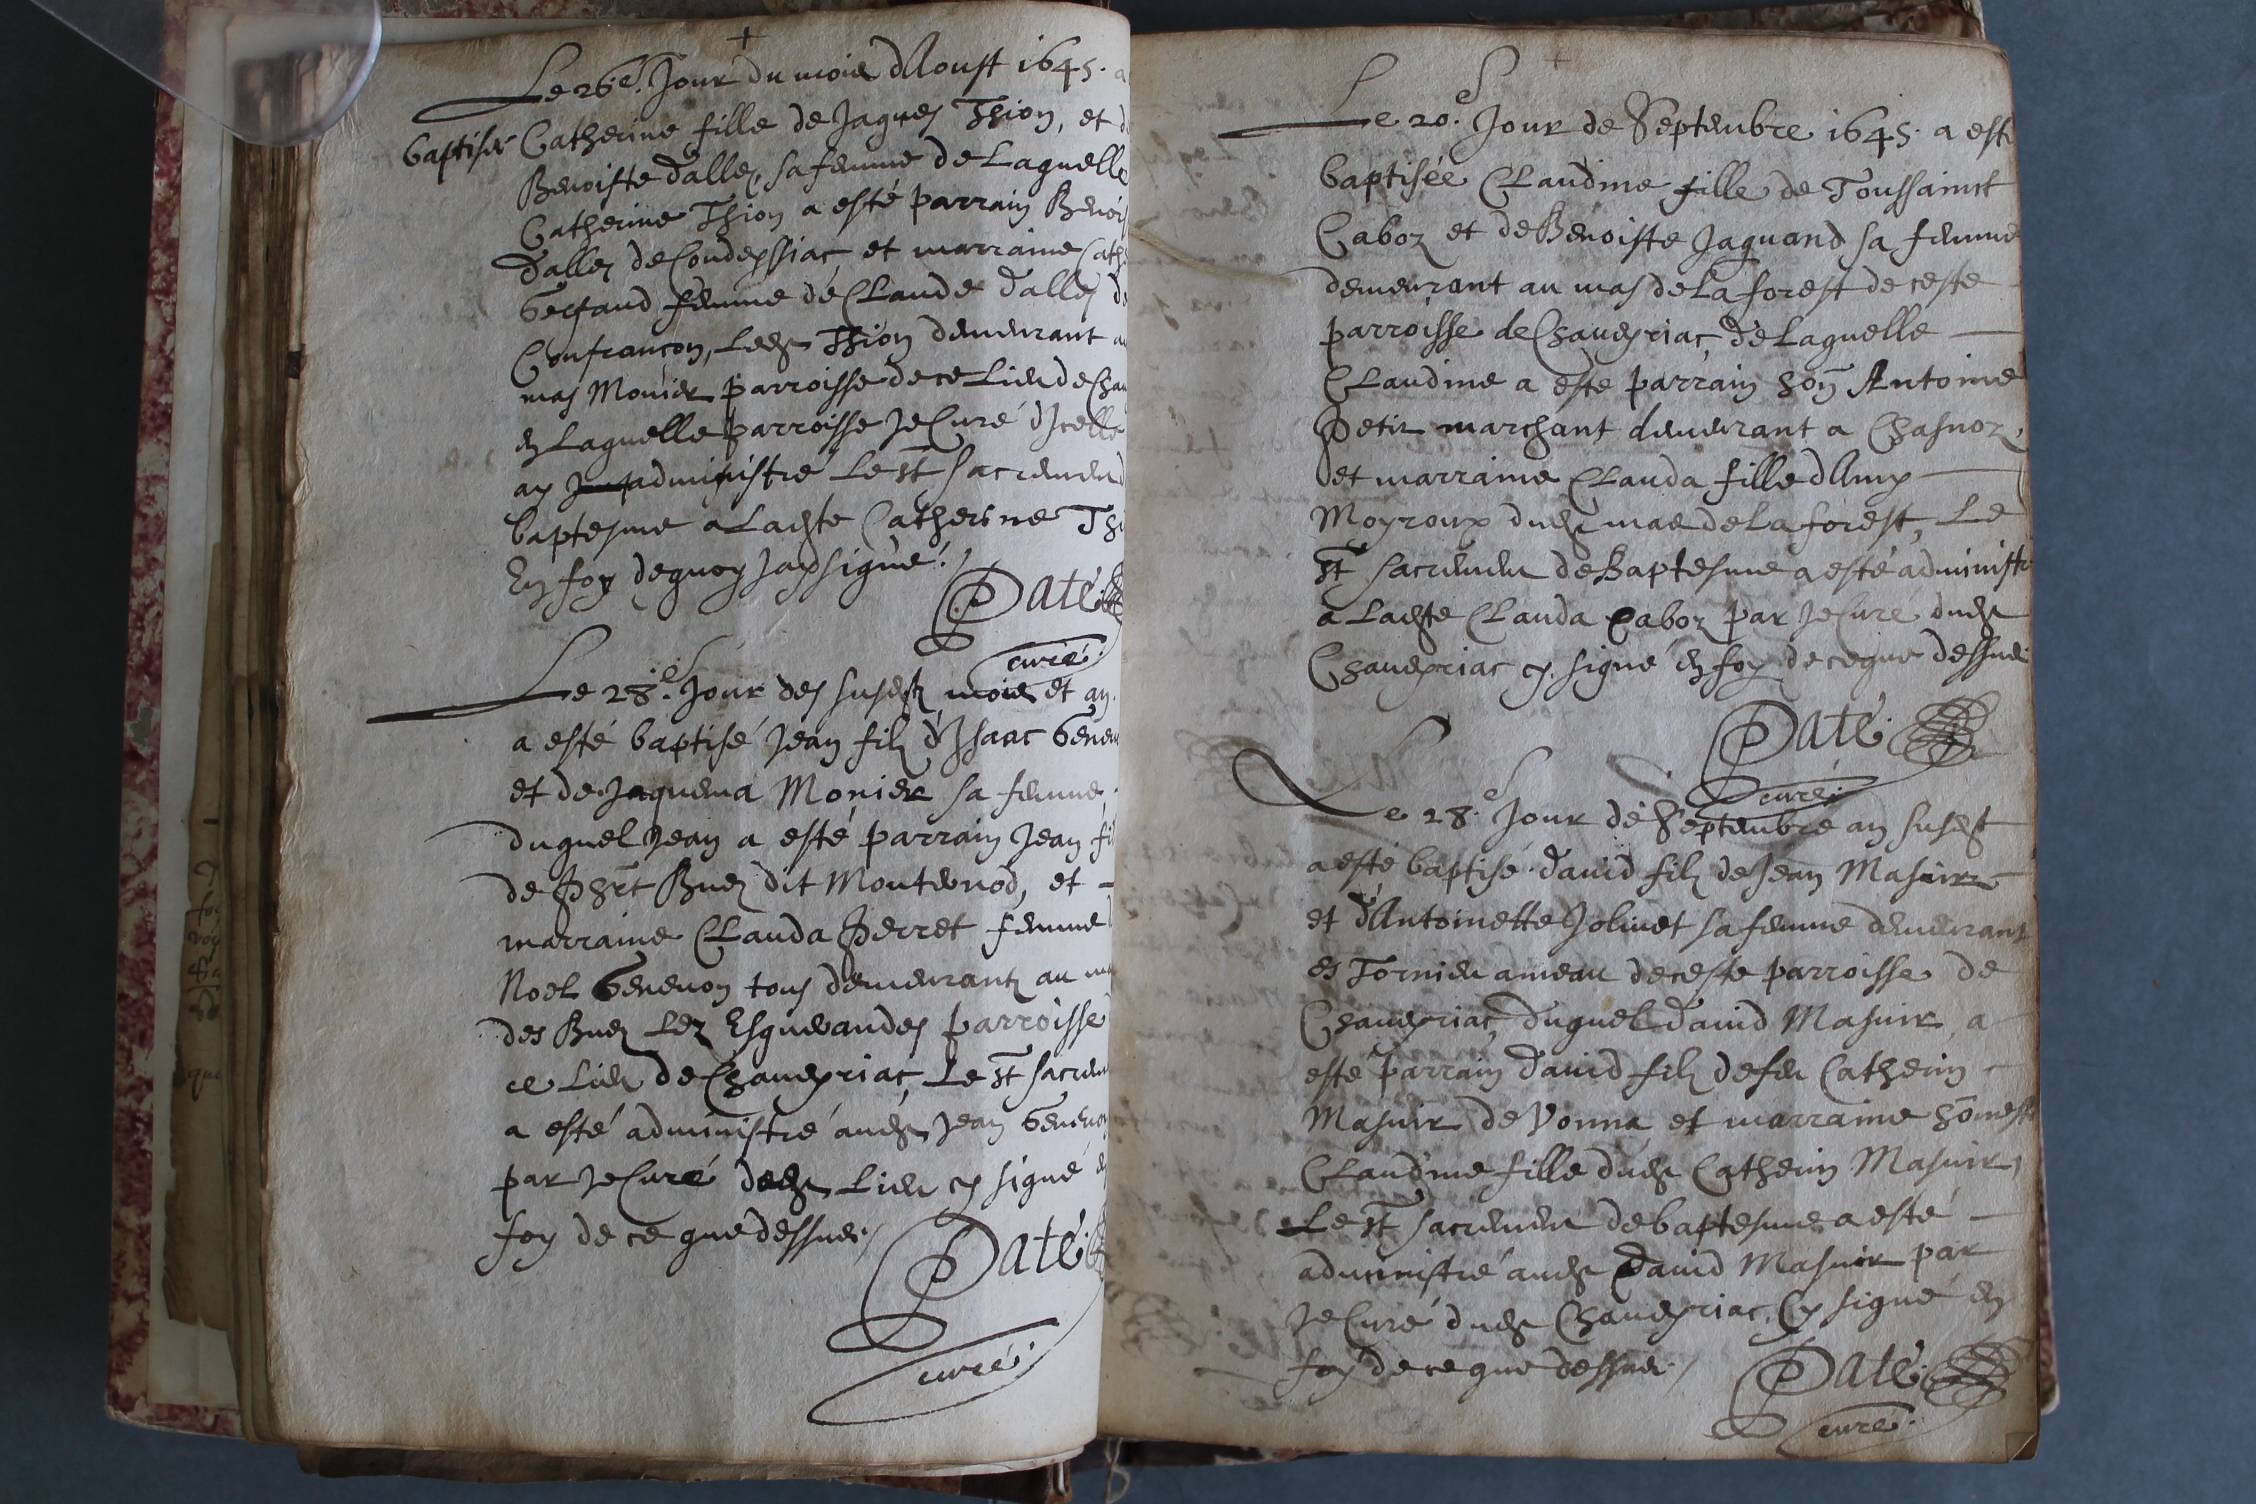 Le 26.e Jour du mois dAoust 1645. a
baptisée Catherine fille de Jaques Thion, et d
Benoiste dallez, sa femme de Laquelle
Catherine Thion a esté parrain Benois
dallez de Condeyssiac et marraine Cath
femme de Claude dallez de
Confrançon, Ledt Thion demeurant au
mas Monier parroisse de ce Lieu de Chau
en Laquelle parroisse Je Curé dIcelle
ay administré Le st sacrement
baptesme a Ladte Catherine Thi
En foy dequoy Jay signé./
Paté
curé.
Le 28.e Jour des susdts mois et an.
a esté baptisé Jean filz dIsaac Genev
et de Jaquema Monier sa femme,
duquel Jean a esté parrain Jean fil
de Phbrt Buez dit Monternod, et
marraine Clauda Perret femme d
Noel Genevon tous demeurantz au ma
des Buez Lez Esguerandes parroisse
ce Lieu de Chaveyriac, Le st sacrem
a esté administré audt Jean Genevon
par Je Curé dudt Lieu cy signé en
foy de ce que dessus./
Paté.
curé.
Le 20.e Jour de Septembre 1645. a esté
baptisée Claudine fille de Toussainct
Caboz et de Benoiste Jaquand sa femme
demeurant au mas de La forest de ceste
parroisse de Chaveyriac, de Laquelle
Claudine a este parrain hon Antoine
Petit marchant demeurant a Chasnoz,
et marraine Clauda fille dAny
Moyroux dudt mas de La forest, Le
st sacrement de Baptesme a esté administr
a Ladte Clauda Caboz par Je Curé dudt
Chaveyriac cy signé en foy de ce que dessus
Paté.
curé.
Le 28.e Jour de Septembre an susdt
a esté baptisé david filz de Jean Masuir
et dAntoinette Jolivet sa femme demeurant
es Tornieu ameau de ceste parroisse de
Chaveyriac, duquel david Masuir a
esté parrain david filz de feu Catherin
Masuir de Vonna et marraine honeste
Claudine fille dudt Catherin Masuir,
Le st sacrement de baptesme a esté
administré audt david Masuir par
Je Curé dudt Chaveyriac, Cy signé en
foy de ce que dessus./
Paté.
curé.